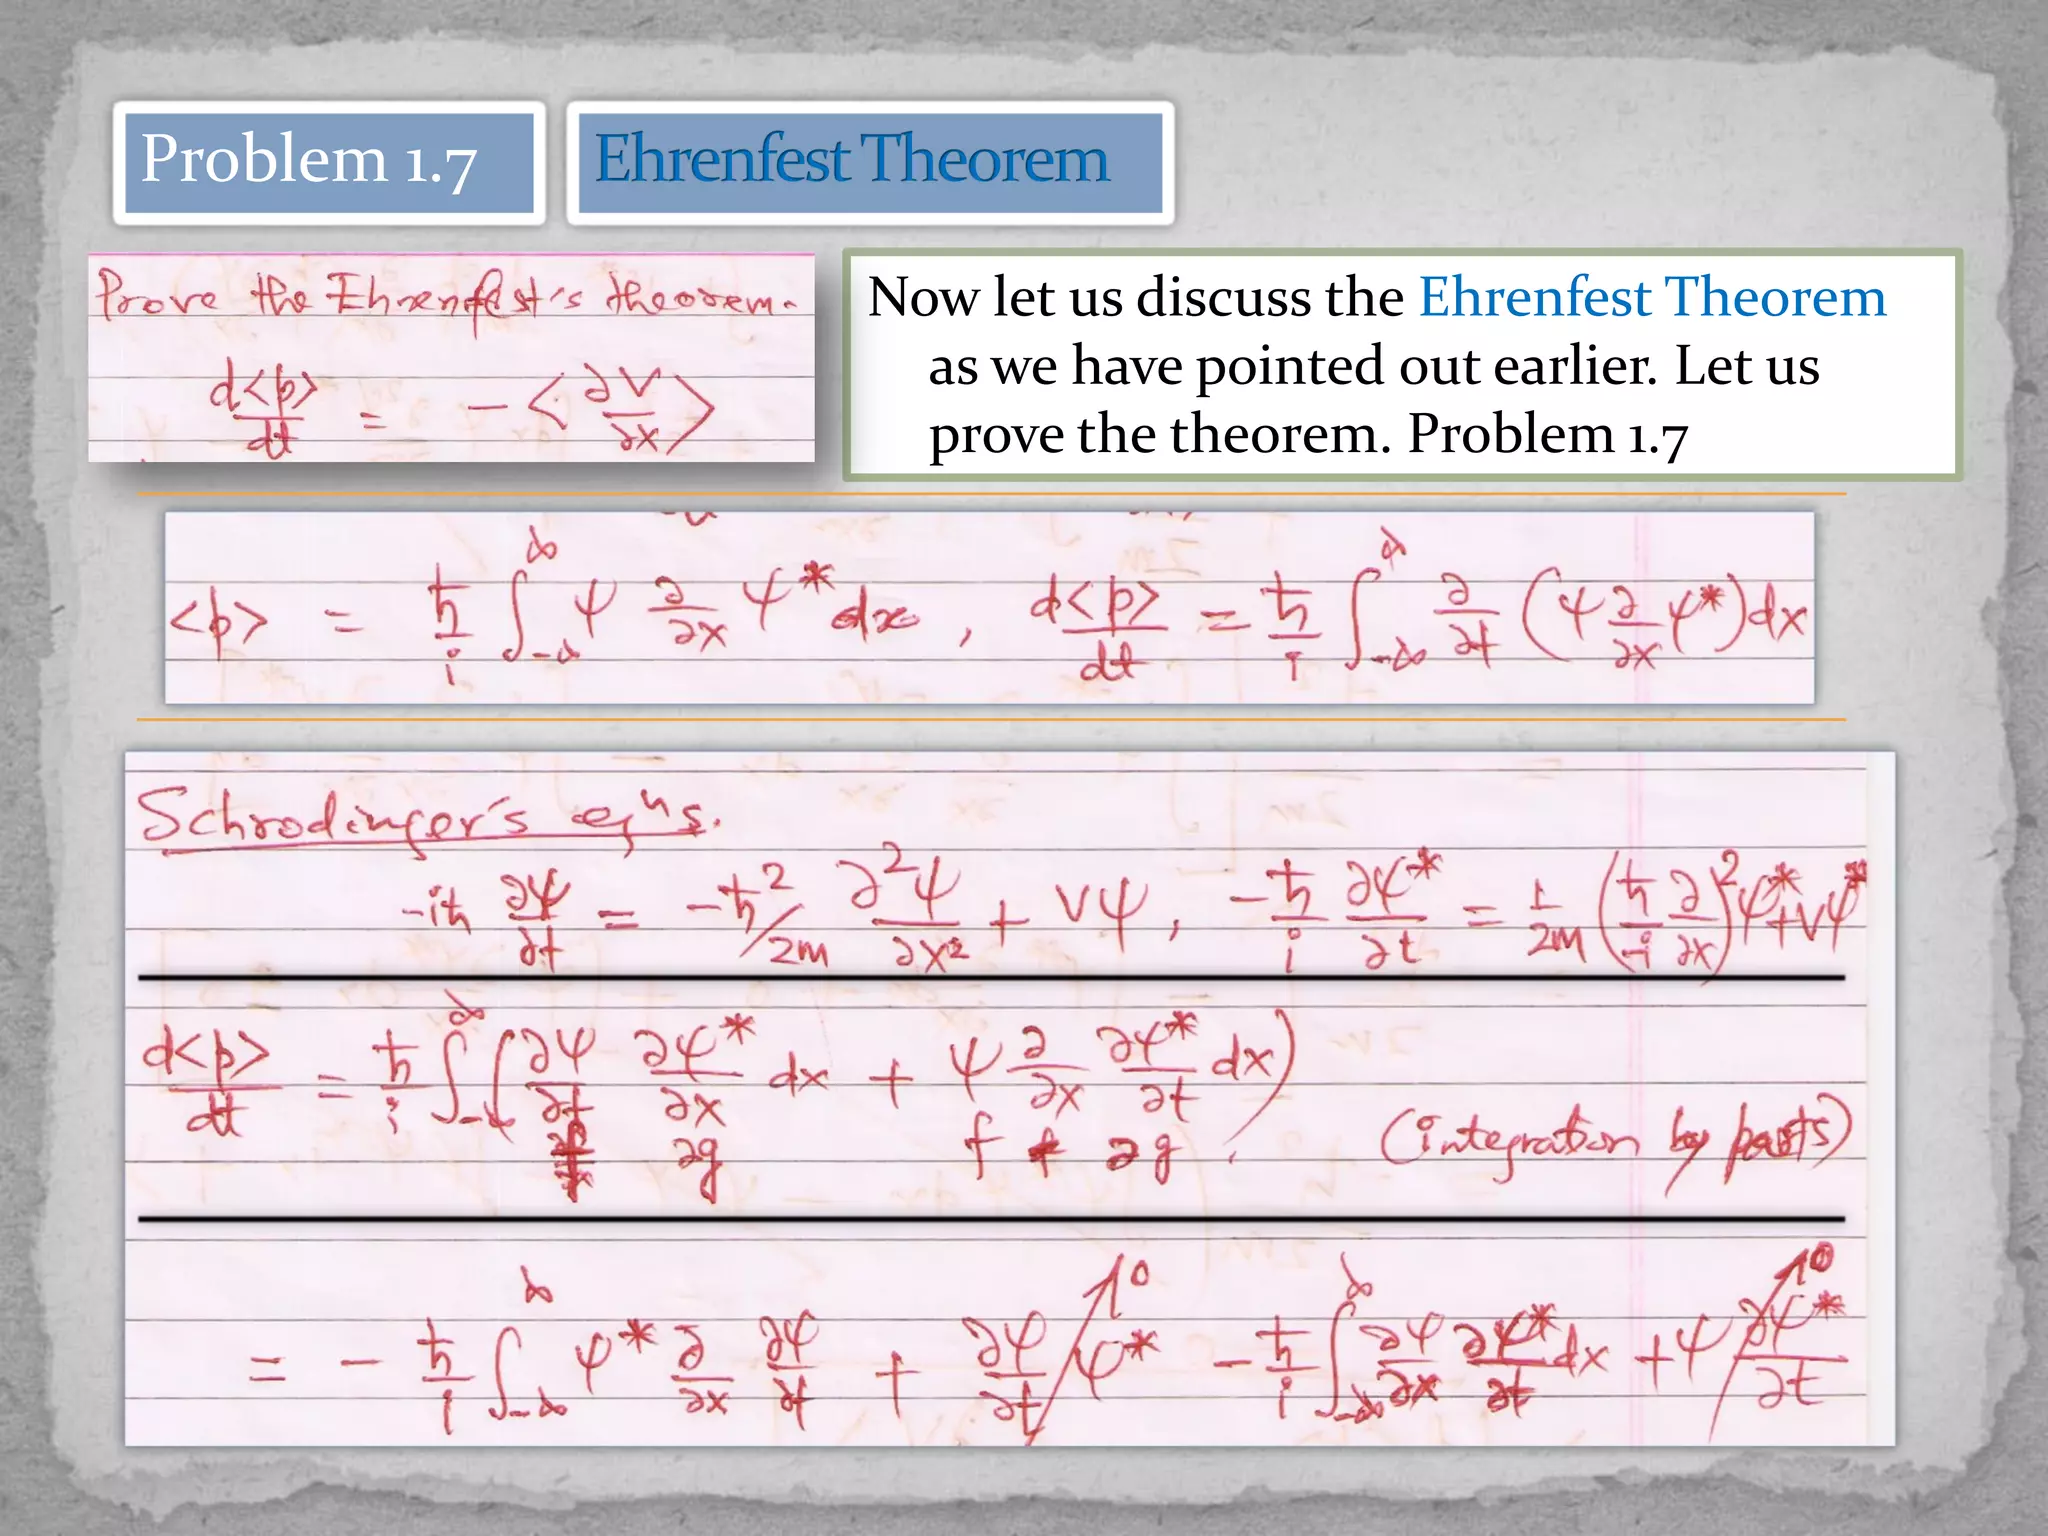 Problem 1.7
Ehrenfest Theorem
Prove the Ehrenfest's theorem.
d<p>/dt = - <∂V/∂x>
Now let us discuss the Ehrenfest Theorem
as we have pointed out earlier. Let us
prove the theorem. Problem 1.7
<p> = ħ/i ∫_{-∞}^{∞} ψ ∂/∂x ψ* dx , d<p>/dt = ħ/i ∫_{-∞}^{∞} ∂/∂t (ψ ∂/∂x ψ*) dx
Schrodinger's eqns.
-iħ ∂ψ/∂t = -ħ²/2m ∂²ψ/∂x² + Vψ , -ħ/i ∂ψ*/∂t = 1/2m (ħ/-i ∂/∂x)² ψ* + Vψ*
d<p>/dt = ħ/i ∫_{-∞}^{∞} (∂ψ/∂t ∂ψ*/∂x dx + ψ ∂/∂x ∂ψ*/∂t dx)
∂g f ∂g . (integration by parts)
= - ħ/i ∫_{-∞}^{∞} ψ* ∂/∂x ∂ψ/∂t + ∂ψ/∂t ψ* 0 - ħ/i ∫_{-∞}^{∞} ∂ψ/∂x ∂ψ*/∂t dx + ψ ∂ψ*/∂t 0